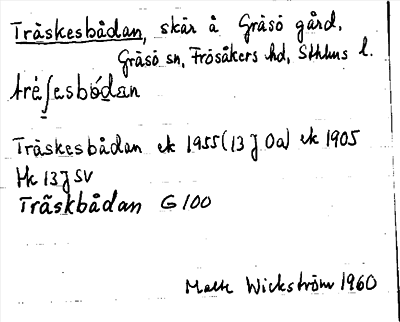 Träskesbådan, skär å Gräsö gård,
Gräsö sn, Frösåkers hd, Sthlms l.
tré̱ʃesbó̱dan
Träskesbådan ek 1955 (13 J Oa) ek 1905
Hk 13 J SV
Träskbådan G 100
Malte Wickström 1960